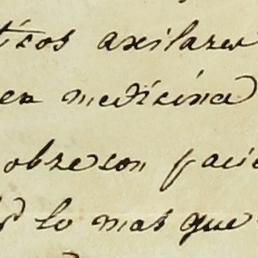 ticos axilares
en medicina
obrecon pacie
lo mas que